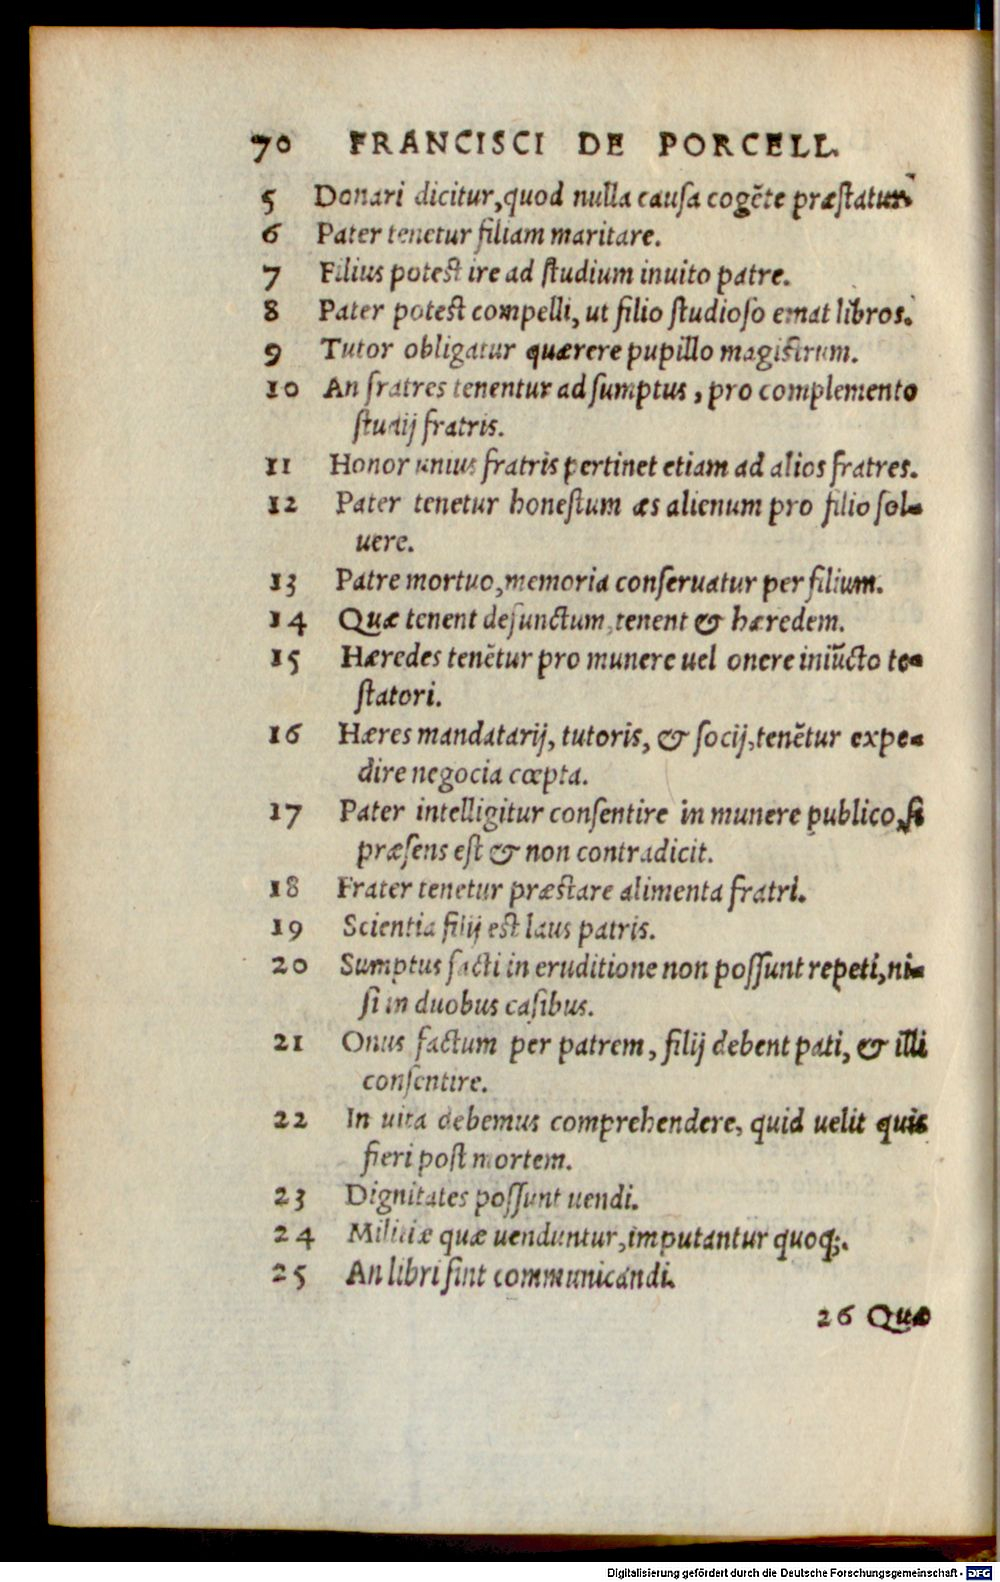 70 FRANCISCI DE PORCELL.
5 Donari dicitur, quod nulla causa cogẽte præstatur.
6 Pater tenetur filiam maritare.
7 Filius potest ire ad studium inuito patre.
8 Pater potest compelli, ut filio studioso emat libros.
9 Tutor obligatur quærere pupillo magistrum.
10 An fratres tenentur ad sumptus, pro complemento
studij fratris.
11 Honor unius fratris pertinet etiam ad alios fratres.
12 Pater tenetur honestum æs alienum pro filio sol-
uere.
13 Patre mortuo, memoria conseruatur per filium.
14 Quæ tenent defunctum, tenent & hæredem.
15 Hæredes tenẽtur pro munere uel onere iniũcto te-
statori.
16 Hæres mandatarij, tutoris, & socij, tenẽtur expe-
dire negocia cœpta.
17 Pater intelligitur consentire in munere publico, si
præsens est & non contradicit.
18 Frater tenetur præstare alimenta fratri.
19 Scientia filij est laus patris.
20 Sumptus facti in eruditione non possunt repeti, ni-
si in duobus casibus.
21 Onus factum per patrem, filij debent pati, & illi
consentire.
22 In uita debemus comprehendere, quid uelit quis
fieri post mortem.
23 Dignitates possunt uendi.
24 Militiæ quæ uenduntur, imputantur quoq;.
25 An libri sint communicandi.
26 Quæ
Digitalisierung gefördert durch die Deutsche Forschungsgemeinschaft - DFG